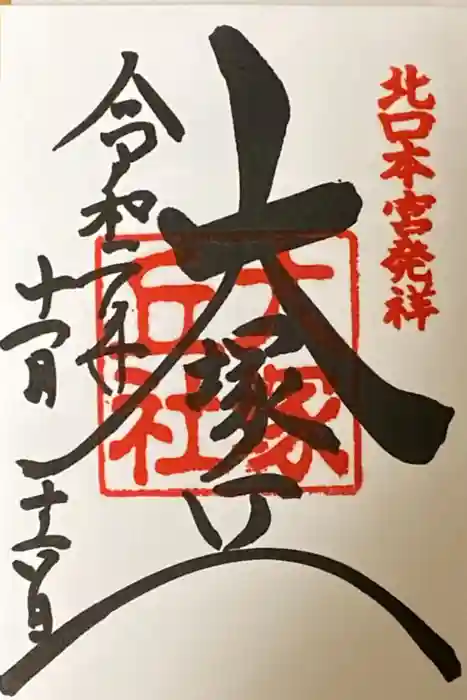 北口本宮発祥
大塚丘
大塚
丘社
令和二年
十一月